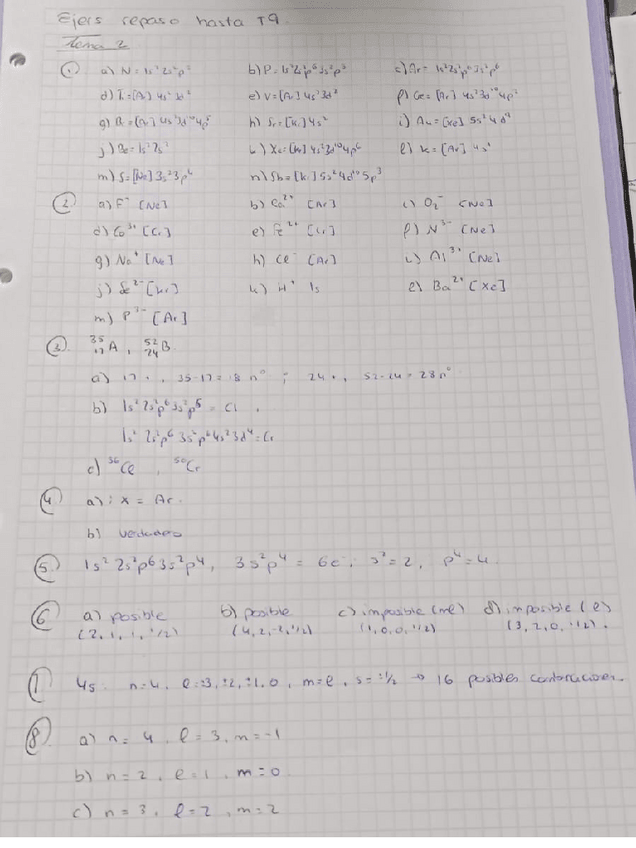 Ejers repaso hasta T9.
Tema 2
① a) N = 1s² 2s² p³ b) P = 1s² 2s² p⁶ 3s² p³ c) Ar = 1s² 2s² p⁶ 3s² p⁶
d) Ti = [Ar] 4s² 3d² e) V = [Ar] 4s² 3d³ f) Ge = [Ar] 4s² 3d¹⁰ 4p²
g) Br = [Ar] 4s² 3d¹⁰ 4p⁵ h) Sr = [Kr] 4s² i) Au = [Xe] 5s² 4d⁹
j) Be = 1s² 2s² k) Xe = [Kr] 4s² 3d¹⁰ 4p⁶ l) K = [Ar] 4s¹
m) S = [Ne] 3s² 3p⁴ n) Sb = [Kr] 5s² 4d¹⁰ 5p³
② a) F⁻ [Ne] b) Ca²⁺ [Ar] c) O₂⁻ [Ne]
d) Co³⁺ [Cr] e) Fe²⁺ f) N³⁻ [Ne]
g) Na⁺ [Ne] h) Cl⁻ [Ar] i) Al³⁺ [Ne]
j) Se²⁻ [Kr] k) H⁺ 1s l) Ba²⁺ [Xe]
m) P³⁻ [Ar]
③ ³⁵₁₇A, ⁵²₂₄B
a) 17 , 35-17 = 18 n° ; 24 , 52-24 = 28 n°
b) 1s² 2s² p⁶ 3s² p⁵ = Cl
1s² 2s² p⁶ 3s² p⁶ 4s² 3d⁴ = Cr
c) ³⁶Cl , ⁵⁰Cr
④ a) X = Ar.
b) verdadero
⑤ 1s² 2s² p⁶ 3s² p⁴, 3s² p⁴ = 6e⁻, s² = 2, p⁴ = 4
⑥ a) posible b) posible c) imposible (ml) d) imposible (e)
(2,1,1,1/2) (4,2,-2,1/2) (1,0,0,1/2) (3,2,0,1/2).
4s: n=4, l=±3, ±2, ±1, 0, m=l, s=±1/2 → 16 posibles
⑧ a) n = 4, l = 3, m = -1
b) n = 2, l = 1, m = 0
c) n = 3, l = 2, m = 2